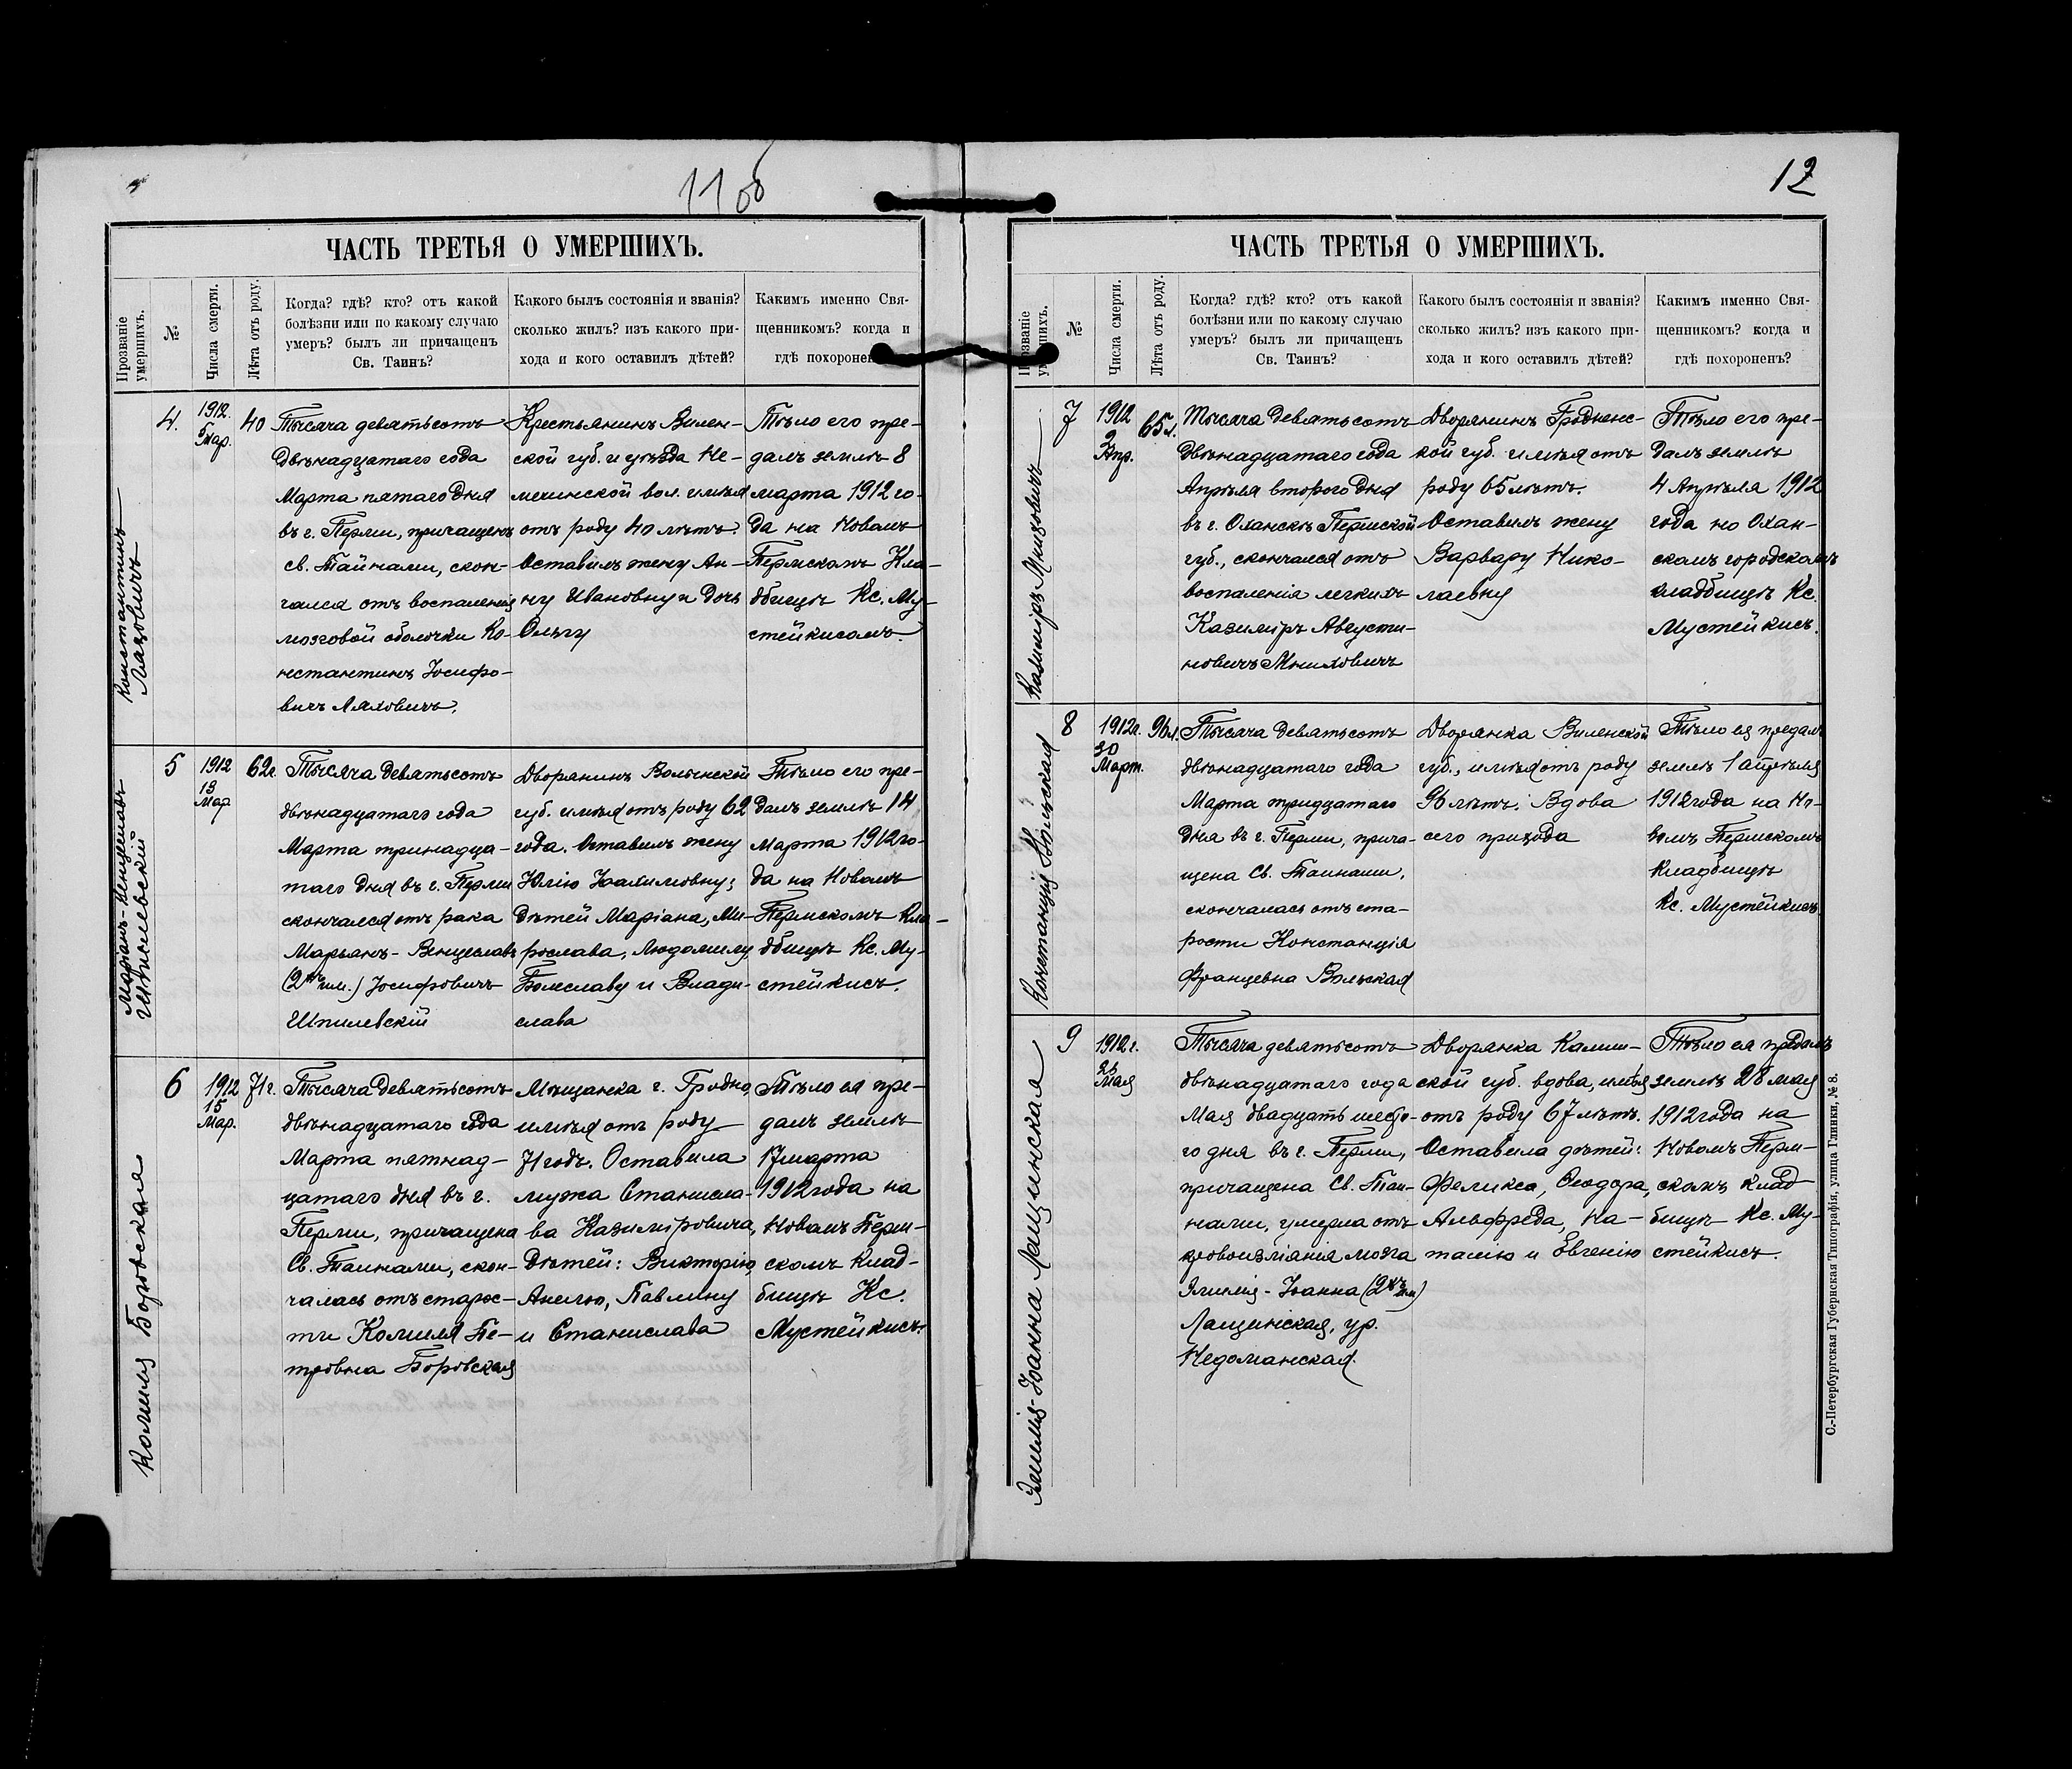 11 об
ЧАСТЬ ТРЕТЬЯ О УМЕРШИХЪ.
Прозваніе умершихъ.
№
Числа смерти.
Лѣта отъ роду.
Когда? гдѣ? кто? отъ какой
болѣзни или по какому случаю
умеръ? былъ ли причащенъ
Св. Таинъ?
Какого былъ состоянія и званія?
сколько жилъ? изъ какого при-
хода и кого оставилъ дѣтей?
Какимъ именно Свя-
щенникомъ? когда и
гдѣ похоронен
Константинъ
4.
1912.
5 мар.
40
Тысяча девятьсотъ
двѣнадцатаго года
Марта пятаго дня
въ г. Перми, причащенъ
св. Тайнами, скон-
чался отъ воспаленія
мозговой оболочки Ко-
нстантинъ Іосифо-
вичъ Ляховичъ.
Крестьянинъ Вилен-
ской губ. и уѣзда Не-
менчинской вол. имѣя
отъ роду 40 лѣтъ.
Оставилъ жену Ан-
ну Ивановну и дочь
Ольгу
Тѣло его пре-
далъ землѣ 8
марта 1912 го-
да на Новомъ
Пермскомъ Кла-
дбищѣ Кс. Му-
стейкисомъ.
Маріанъ-Венцеславъ
Шпилевскій
5
1912
13
Мар
62г.
Тысяча девятьсотъ
двѣнадцатаго года
Марта тринадца-
таго дня въ г. Перми
скончался отъ рака
Марьянъ-Венцеславъ
(2хъ им.) Іосифовичъ
Шпилевскій
Дворянинъ Волынской
губ. имѣя отъ роду 62
года. Оставилъ жену
Юлію Іоакимовну;
дѣтей Маріана, Ми-
рослава, Людомилу,
Болеславу и Влади-
слава
Тѣло его пре-
далъ землѣ 14
Марта 1912 го-
да на Новомъ
Пермскомъ Кла-
дбищѣ Кс. Му-
стейкисъ.
Комиля Боровская
6
1912
15
Мар.
71г.
Тысяча девятьсотъ
двѣнадцатаго года
Марта пятнад-
цатаго дня въ г.
Перми, причащена
Св. Таинами, скон-
чалась отъ старос-
ти Комиля Пе-
тровна Боровская
Мѣщанка г. Гродно,
имѣя отъ роду
71 годъ. Оставила
мужа Станисла-
ва Казиміровича,
дѣтей: Викторію,
Анелю, Павлину
и Станислава
Тѣло ея пре-
далъ землѣ
17 марта
1912 года на
Новомъ Перм-
скомъ клад-
бищѣ Кс.
Мустейкисъ.
12
ЧАСТЬ ТРЕТЬЯ О УМЕРШИХЪ.
№
Числа смерти.
Лѣта отъ роду.
Когда? гдѣ? кто? отъ какой
болѣзни или по какому случаю
умеръ? былъ ли причащенъ
Св. Таинъ?
Какого былъ состоянія и званія?
сколько жилъ? изъ какого при-
хода и кого оставилъ дѣтей?
Какимъ именно Свя-
щенникомъ? когда и
гдѣ похороненъ?
Казиміръ
7
1912
2
Апр.
65л.
Тысяча девятьсотъ
двѣнадцатаго года
Апрѣля второго дня
въ г. Оханскѣ Пермской
губ., скончался отъ
воспаленія легкихъ
Казиміръ Августи-
новичъ Мниховичъ
Дворянинъ Гродненс-
кой губ. имѣя отъ
роду 65 лѣтъ.
Оставилъ жену
Варвару Нико-
лаевну
Тѣло его пре-
далъ землѣ
4 Апрѣля 1912
года но Охан-
скомъ городскомъ
кладбищѣ Кс.
Мустейкисъ.
Констанція Вольская
8
1912г.
30
Март.
96л.
Тысяча девятьсотъ
двѣнадцатаго года
Марта тридцатаго
дня въ г. Перми, прича-
щена Св. Таинами,
скончалась отъ ста-
рости Констанція
Францевна Вольская
Дворянка Виленской
губ., имѣя отъ роду
96 лѣтъ. Вдова
сего прихода
Тѣло ея предалъ
землѣ 1 апрѣля
1912 года на Но-
вомъ Пермскомъ
Кладбищѣ
Кс. Мустейкисъ
Эмилія-Іоанна Лащинская
9
1912 г.
26
Мая
Тысяча девятьсотъ
двѣнадцатаго года
Мая двадцать шесто-
го дня въ г. Перми,
причащена Св. Таи-
нами, умерла отъ
кровоизліянія мозга
Эмилія-Іоанна (2хъ им)
Лащинская, ур.
Недоманская.
Дворянка Калиш-
ской губ. вдова, имѣя
отъ роду 67 лѣтъ.
Оставила дѣтей:
Феликса, Ѳеодора,
Альфреда, На-
талію и Евгенію
Тѣло ея предалъ
землѣ 28 мая
1912 года на
Новомъ Перм-
скомъ клад-
бищѣ Кс. Му-
стейкисъ.
С.-Петербургская Губернская Типографія, улица Глинки, № 8.